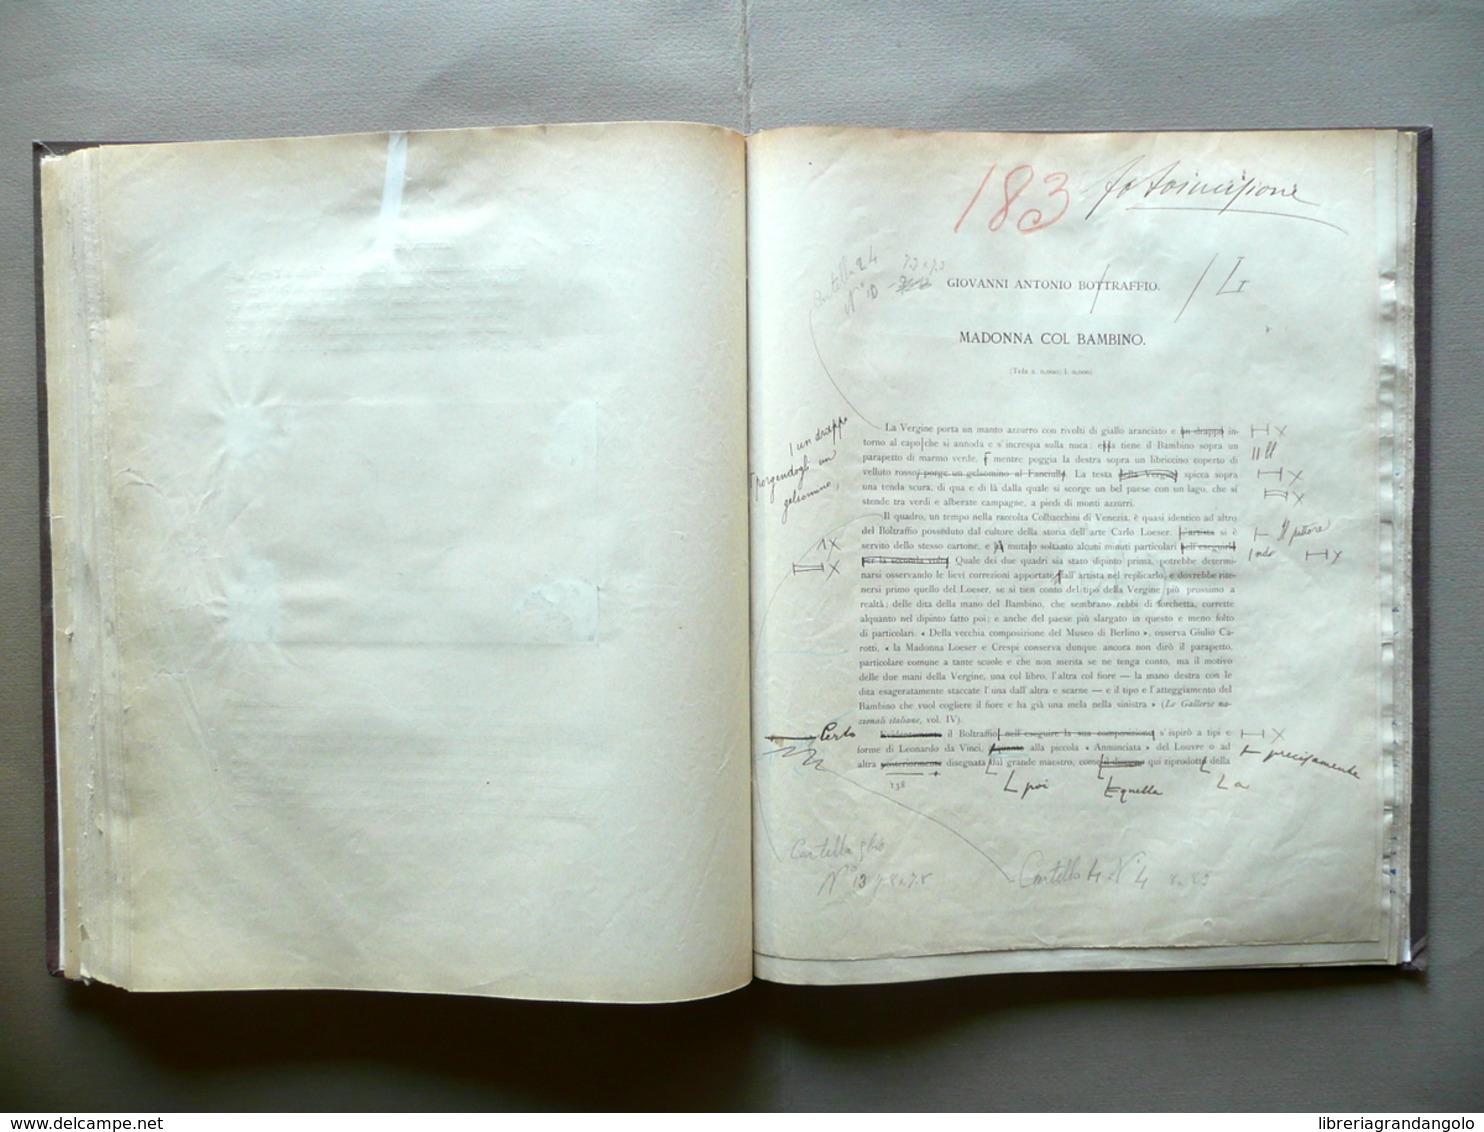 183 fotoincisione
Cartella 24
N° 10
GIOVANNI ANTONIO BOTTRAFFIO. / L
MADONNA COL BAMBINO.
(Tela a. 0,000; l. 0,000)
La Vergine porta un manto azzurro con rivolti di giallo aranciato e un drappo in-
torno al capo che si annoda e s'increspa sulla nuca; essa tiene il Bambino sopra un
parapetto di marmo verde, mentre poggia la destra sopra un libriccino coperto di
velluto rosso, porge un gelsomino al Fanciullo. La testa della Vergine spicca sopra
una tenda scura, di qua e di là dalla quale si scorge un bel paese con un lago, che si
stende tra verdi e alberate campagne, a piedi di monti azzurri.
un drappo
porgendogli un
gelsomino,
Il quadro, un tempo nella raccolta Colbacchini di Venezia, è quasi identico ad altro
del Boltraffio posseduto dal cultore della storia dell'arte Carlo Loeser. L'artista si è
servito dello stesso cartone, e mutato soltanto alcuni minuti particolari nell'eseguirlo
per la seconda volta. Quale dei due quadri sia stato dipinto prima, potrebbe determi-
narsi osservando le lievi correzioni apportate dall'artista nel replicarlo, e dovrebbe rite-
nersi primo quello del Loeser, se si tien conto del tipo della Vergine più prossimo a
realtà; delle dita della mano del Bambino, che sembrano rebbi di forchetta, corrette
alquanto nel dipinto fatto poi; e anche del paese più slargato in questo e meno folto
di particolari. « Della vecchia composizione del Museo di Berlino », osserva Giulio Ca-
rotti, « la Madonna Loeser e Crespi conserva dunque ancora non dirò il parapetto,
particolare comune a tante scuole e che non merita se ne tenga conto, ma il motivo
delle due mani della Vergine, una col libro, l'altra col fiore — la mano destra con le
dita esageratamente staccate l'una dall'altra e scarne — e il tipo e l'atteggiamento del
Bambino che vuol cogliere il fiore e ha già una mela nella sinistra » (Le Gallerie na-
zionali italiane, vol. IV).
Il pittore
ndo
Certo
Evidentemente il Boltraffio nell'eseguire la sua composizione s'ispirò a tipi e
forme di Leonardo da Vinci, quanto alla piccola « Annunciata » del Louvre o ad
altra posteriormente disegnata dal grande maestro, come il disegno qui riprodotto della
precisamente
138
poi
quella
a
Cartella
N° 13
Cartella 4 N° 4
http://www.delcampe.net
libreriagrandangolo